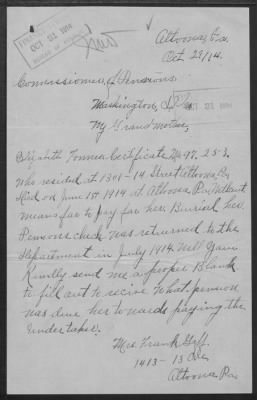 OCT 23 1914
Altoona, Pa.
Oct 22/14.
Commissioner of Pensions
Washington, D.C.
OCT 23 1914
My Grandmother,
Elizabeth Certificate No 97.253.
who resided at 1301-14 Street Altoona Pa
Died on June 1st 1914 at Altoona, Pa, Without
means for to pay for her Burial her
Pensions check was returned to the
Department in July 1914. Will you
Kindly send me a proper Blank
to fill out to recive what pension
was due her towards paying the
Undertaker.
Mrs. Frank
1413-13 Ave
Altoona Pa.